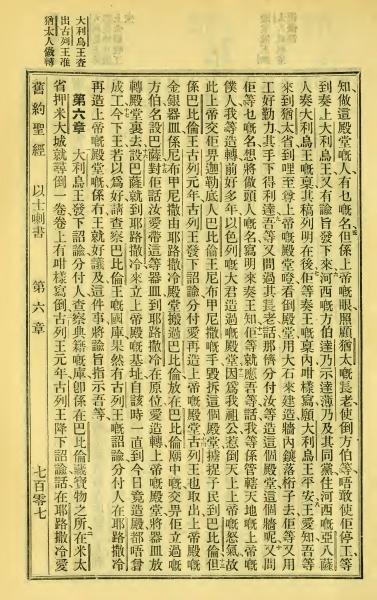 知做這殿堂嘅人有乜嘅名但係上帝嘅眼照顧猶太嘅長老使倒方伯等唔敢使佢停工等
到奏上大利烏王又有諭旨發下來河西嘅方伯達乃示達薄乃及其同黨住河西嘅亞八薩
人奏大利烏王嘅稟其稿列明在後佢等奏王嘅稟內咁樣寫願大利烏王平安王愛知吾等
來到猶太省到哩至尊上帝嘅殿堂瞪看倒殿堂用大石來建造牆內鑲落桁子去佢等又用
工好勤力其手下得利達吾等又問過其長老話那儕分付汝等造這個殿堂這個牆呢又問
佢等乜嘅名想將做頭人嘅名寫明來奏王知佢等就應吾等話我等係管轄天地嘅上帝嘅
僕人我等造轉前好多年以色列嘅大君造過嘅殿堂因爲我祖公惹倒天上上帝嘅怒氣故
此上帝交佢畀迦勒底人巴比倫王尼布甲尼撒嘅手毀拆這個殿堂擄捉子民到巴比倫但
係巴比倫王古列元年古列王發下詔諭分付愛再造上帝嘅殿堂古列王也取出上帝殿嘅
金銀器皿係尼布甲尼撒由耶路撒冷殿堂擄過巴比倫放在巴比倫廟中嘅交畀佢立過嘅
方伯名設巴薩對佢話汝愛帶這等器皿到耶路撒冷在原位愛造轉上帝嘅殿堂將器皿放
轉殿堂裏去設巴薩就到耶路撒冷來立上帝殿嘅基址自該時一直到今日竟造殿都唔曾
成工今下王若以爲好請查察巴比倫王嘅國庫果然有古列王嘅詔諭分付人在耶路撒冷
再造上帝嘅殿堂嘅係有王就好議及這件事將諭旨指示吾等
第六章 大利烏王發下詔諭分付人查察典籍嘅庫卽係在巴比倫藏寶物之所在米太
省押米大城就尋倒一卷卷上有咁樣寫倒古列王元年古列王降下詔諭話在耶路撒冷愛
大利烏王查
出古列王准
猶太人做轉
舊約聖經 以士喇書 第六章 七百零七